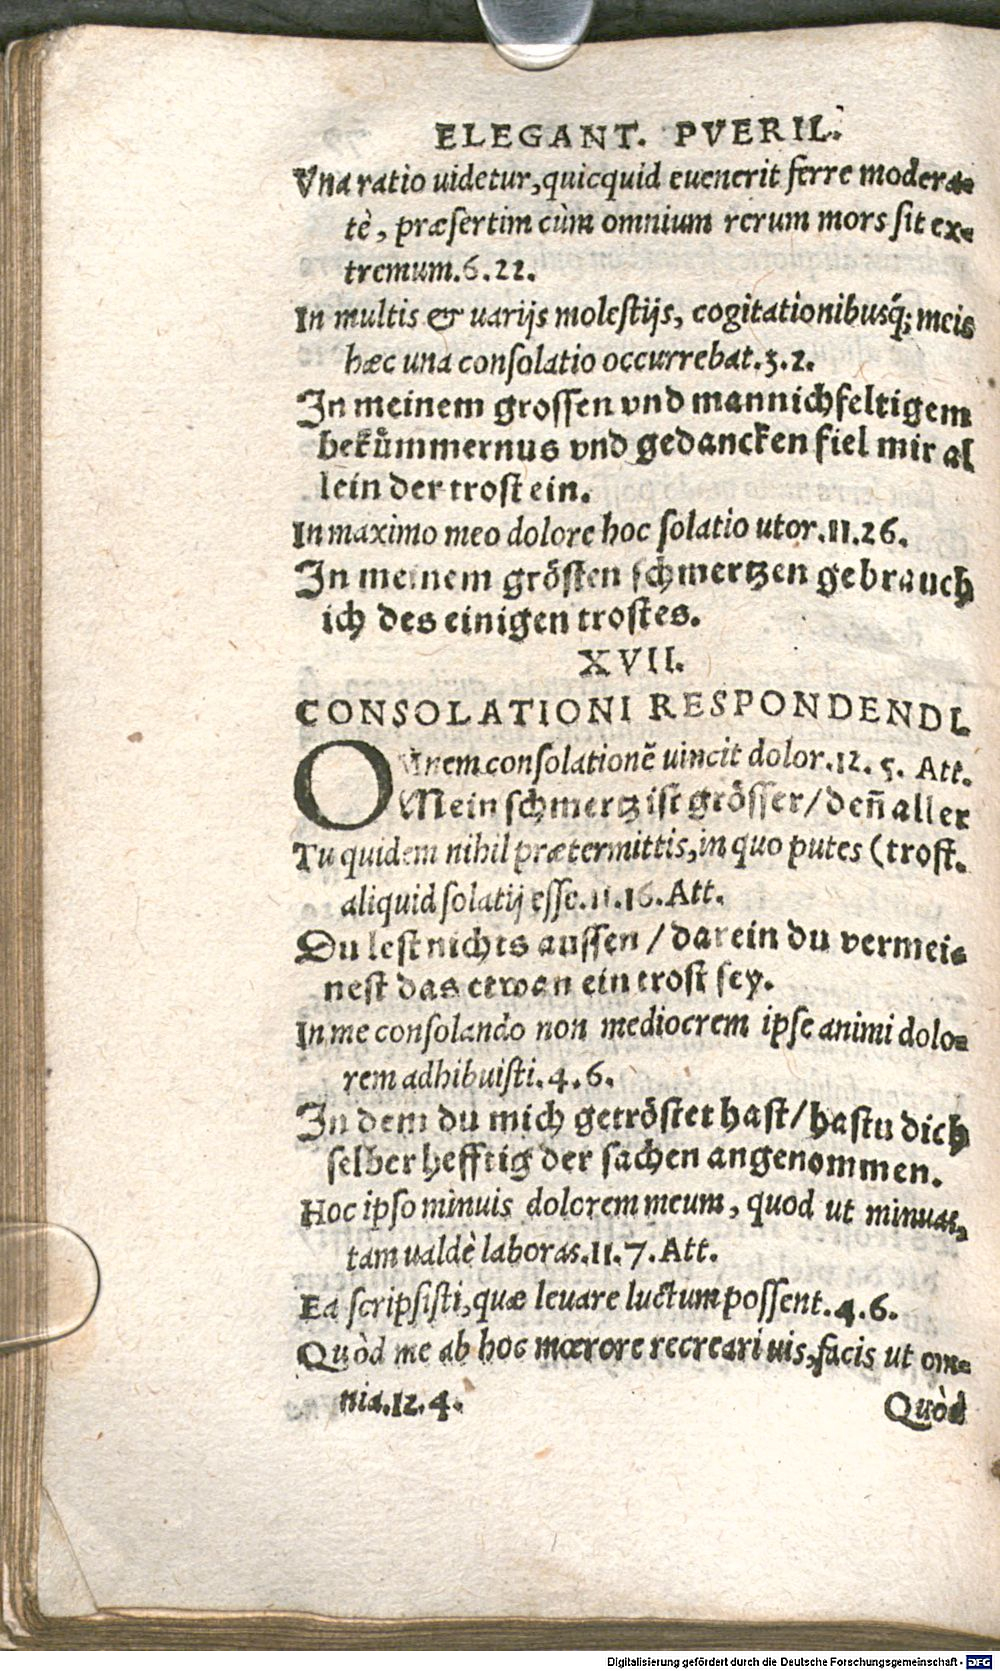 ELEGANT. PVERIL.
Vna ratio uidetur, quicquid euenerit ferre modera=
tè, præsertim cùm omnium rerum mors sit ex=
tremum.6.22.
In multis & uarijs molestijs, cogitationibusq́; meis
hæc una consolatio occurrebat.3.2.
In meinem grossen vnd mannichfeltigem
bekuͤmmernus vnd gedancken fiel mir al
lein der trost ein.
In maximo meo dolore hoc solatio utor.11.26.
In meinem groͤsten schmertzen gebrauch
ich des einigen trostes.
XVII.
CONSOLATIONI RESPONDENDI.
OMnem consolationẽ uincit dolor.12.5. Att.
Mein schmertz ist groͤsser/ deñ aller
Tu quidem nihil prætermittis, in quo putes (trost.
aliquid solatij esse.11.16.Att.
Du lest nichts aussen / darein du vermei=
nest das etwan ein trost sey.
In me consolando non mediocrem ipse animi dolo=
rem adhibuisti.4.6.
In dem du mich getroͤstet hast/ hastu dich
selber hefftig der sachen angenommen.
Hoc ipso minuis dolorem meum, quod ut minuas,
tam ualdè laboras.11.7.Att.
Ea scripsisti, quæ leuare luctum possent.4.6.
Quòd me ab hoc mœrore recreari uis, facis ut om=
nia.12.4.
Quòd
Digitalisierung gefördert durch die Deutsche Forschungsgemeinschaft - DFG